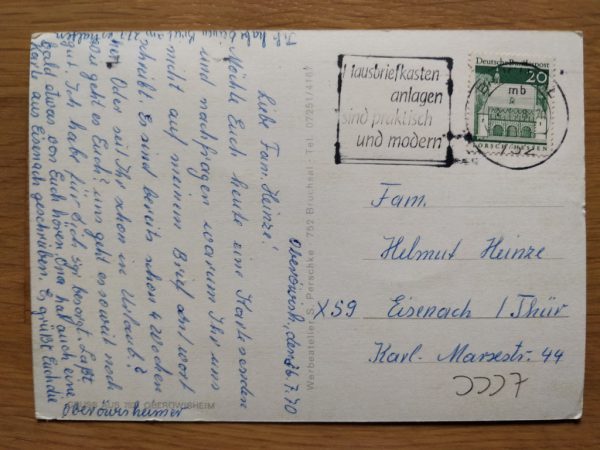 Ich habe
Oberöwish., den 26.7.70
Liebe Fam. Heinze!
Möchte Euch heute eine Karte senden
und nachfragen warum Ihr uns
nicht auf meinem Brief antwort
schreibt. Es sind bereits schon 4 Wochen
her. Oder seit Ihr schon in Urlaub?
Wie geht es Euch? uns geht es soweit noch
gut. Ich habe für Dich besorgt. Laßt
bald etwas von Euch hören. Oma hat auch eine
Karte aus Eisenach geschrieben. Es grüßt Euch die
Oberöwisheimer
GRUSS AUS OBERÖWISHEIM
Werbeatelier S. Perschke 752 Bruchsal Tel. 07251/4161
Hausbriefkasten
anlagen
sind praktisch
und modern
Deutsche Bundespost
20
mb
LORSCH/HESSEN
752
Fam.
Helmut Heinze
X59 Eisenach / Thür
Karl-Marxstr. 44